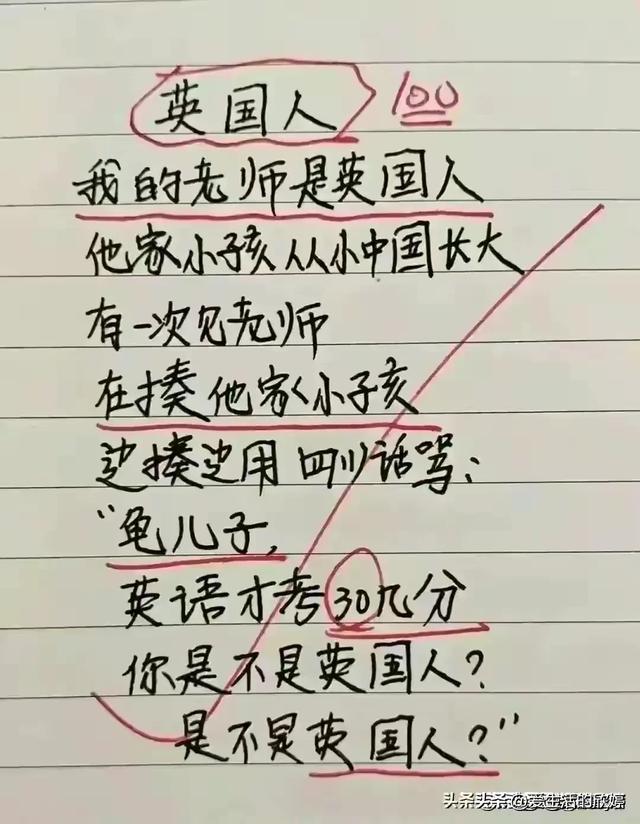 英国人 100
我的老师是英国人
他家小孩从小中国长大
有一次见老师
在揍他家小孩
边揍边用四川话骂:
"龟儿子,
英语才考30几分
你是不是英国人?
是不是英国人?"
头条 @爱生活的欣婷